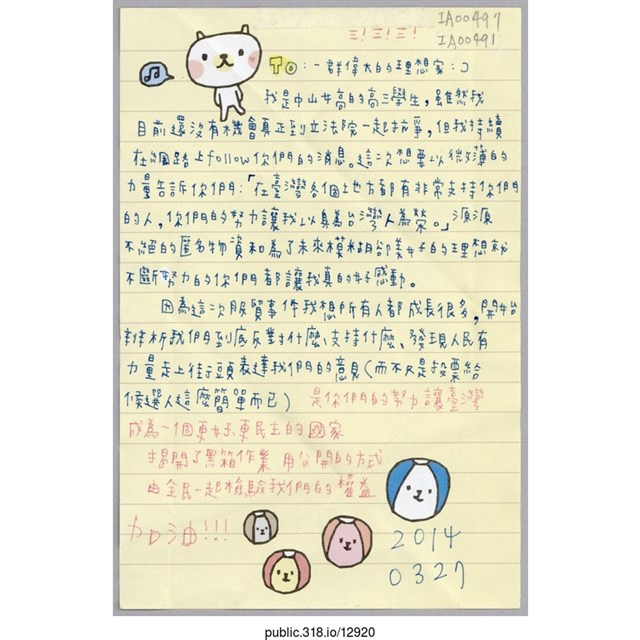 IA00497
三!三!三! IA00491
To:一群偉大的理想家:)
我是中山女高的高三學生,雖然我
目前還沒有機會真正到立法院一起抗爭,但我持續
在網路上follow你們的消息。這次想要以微薄的
力量告訴你們:「在臺灣各個地方都有非常支持你們
的人,你們的努力讓我以身為台灣人為榮。」源源
不絕的匿名物資和為了未來模糊卻美好的理想就
不斷努力的你們都讓我真的好感動。
因為這次服貿事件我想所有人都成長很多,開始
辨析我們到底反對什麼、支持什麼、發現人民有
力量走上街頭表達我們的意見(而不只是投票給
候選人這麼簡單而已) 是你們的努力讓臺灣
成為一個更好更民主的國家
揭開了黑箱作業 用公開的方式
由全民一起檢驗我們的權益
加油!!!
2014
0327
public.318.io/12920